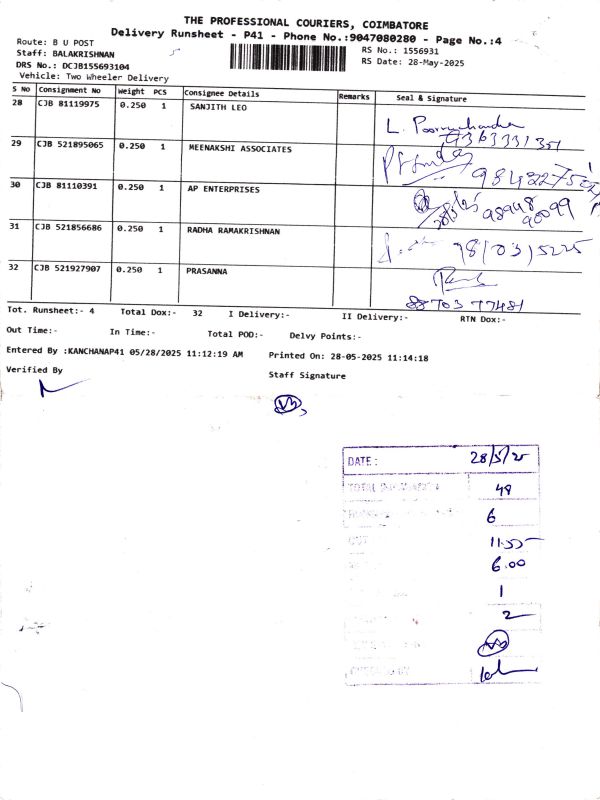 THE PROFESSIONAL COURIERS, COIMBATORE
Delivery Runsheet - P41 - Phone No.:9047080280 - Page No.:4
Route: B U POST
RS No.: 1556931
Staff: BALAKRISHNAN
RS Date: 28-May-2025
DRS No.: DCJB155693104
Vehicle: Two Wheeler Delivery
S No Consignment No Weight PCS Consignee Details Remarks Seal & Signature
28 CJB 81119975 0.250 1 SANJITH LEO
L. Poornachandra
9363331351
29 CJB 521895065 0.250 1 MEENAKSHI ASSOCIATES
30 CJB 81110391 0.250 1 AP ENTERPRISES
28/5/25 98948
98099
31 CJB 521856686 0.250 1 RADHA RAMAKRISHNAN
7810315225
32 CJB 521927907 0.250 1 PRASANNA
88703 77481
Tot. Runsheet:- 4 Total Dox:- 32 I Delivery:- II Delivery:- RTN Dox:-
Out Time:- In Time:- Total POD:- Delvy Points:-
Entered By :KANCHANAP41 05/28/2025 11:12:19 AM Printed On: 28-05-2025 11:14:18
Verified By Staff Signature
DATE : 28/5/25
48
6
OUT 11.55
6.00
1
2